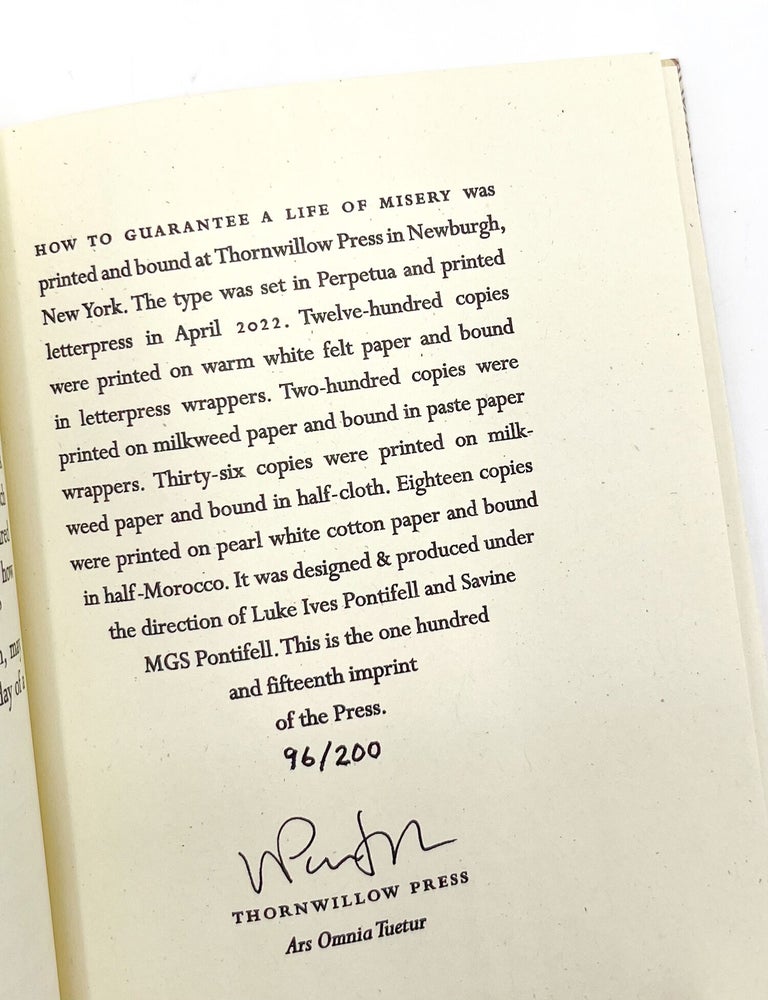 HOW TO GUARANTEE A LIFE OF MISERY was
printed and bound at Thornwillow Press in Newburgh,
New York. The type was set in Perpetua and printed
letterpress in April 2022. Twelve-hundred copies
were printed on warm white felt paper and bound
in letterpress wrappers. Two-hundred copies were
printed on milkweed paper and bound in paste paper
wrappers. Thirty-six copies were printed on milk-
weed paper and bound in half-cloth. Eighteen copies
were printed on pearl white cotton paper and bound
in half-Morocco. It was designed & produced under
the direction of Luke Ives Pontifell and Savine
MGS Pontifell. This is the one hundred
and fifteenth imprint
of the Press.
96/200
THORNWILLOW PRESS
Ars Omnia Tuetur
how
day of a